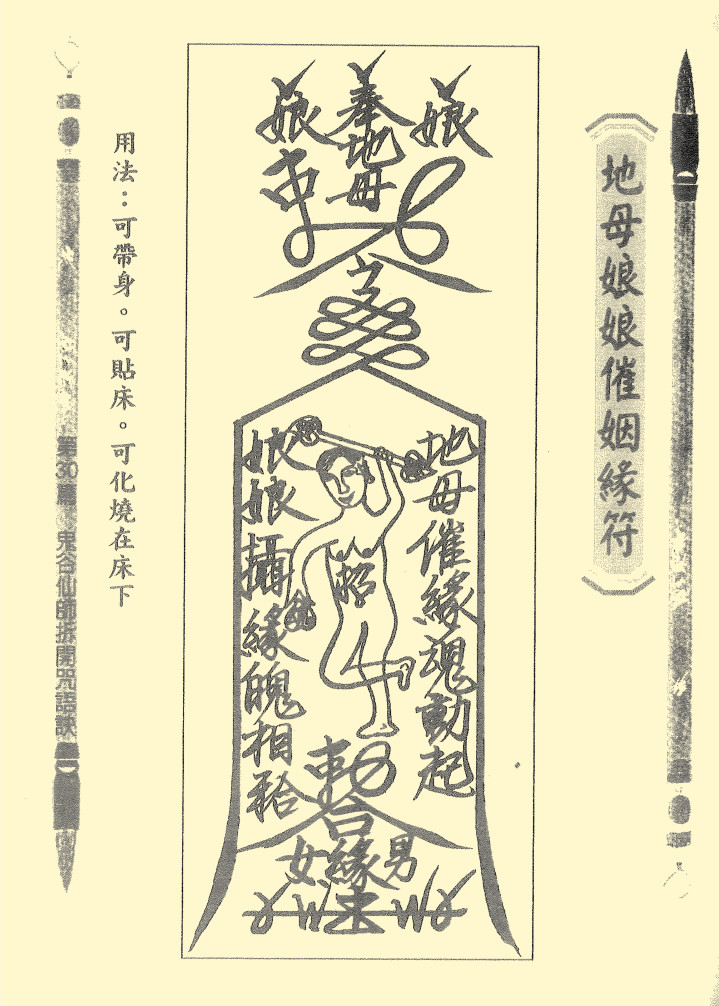 地母娘娘催姻緣符
奉地母
娘
娘
地母催緣魂動起
招
娘娘攝緣魄相
合
男
緣
女
用法：可帶身。可貼床。可化燒在床下
第30篇 鬼谷仙師拆開咒語訣